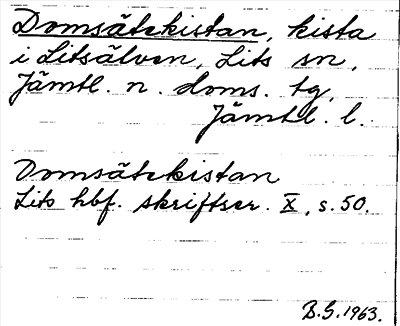 Domsätekistan, kista
i Litsälven, Lits sn,
Jämtl. n. doms. tg,
Jämtl. l.
Domsätekistan
Lits hbf. skriftser. X, s. 50.
B.G. 1963.